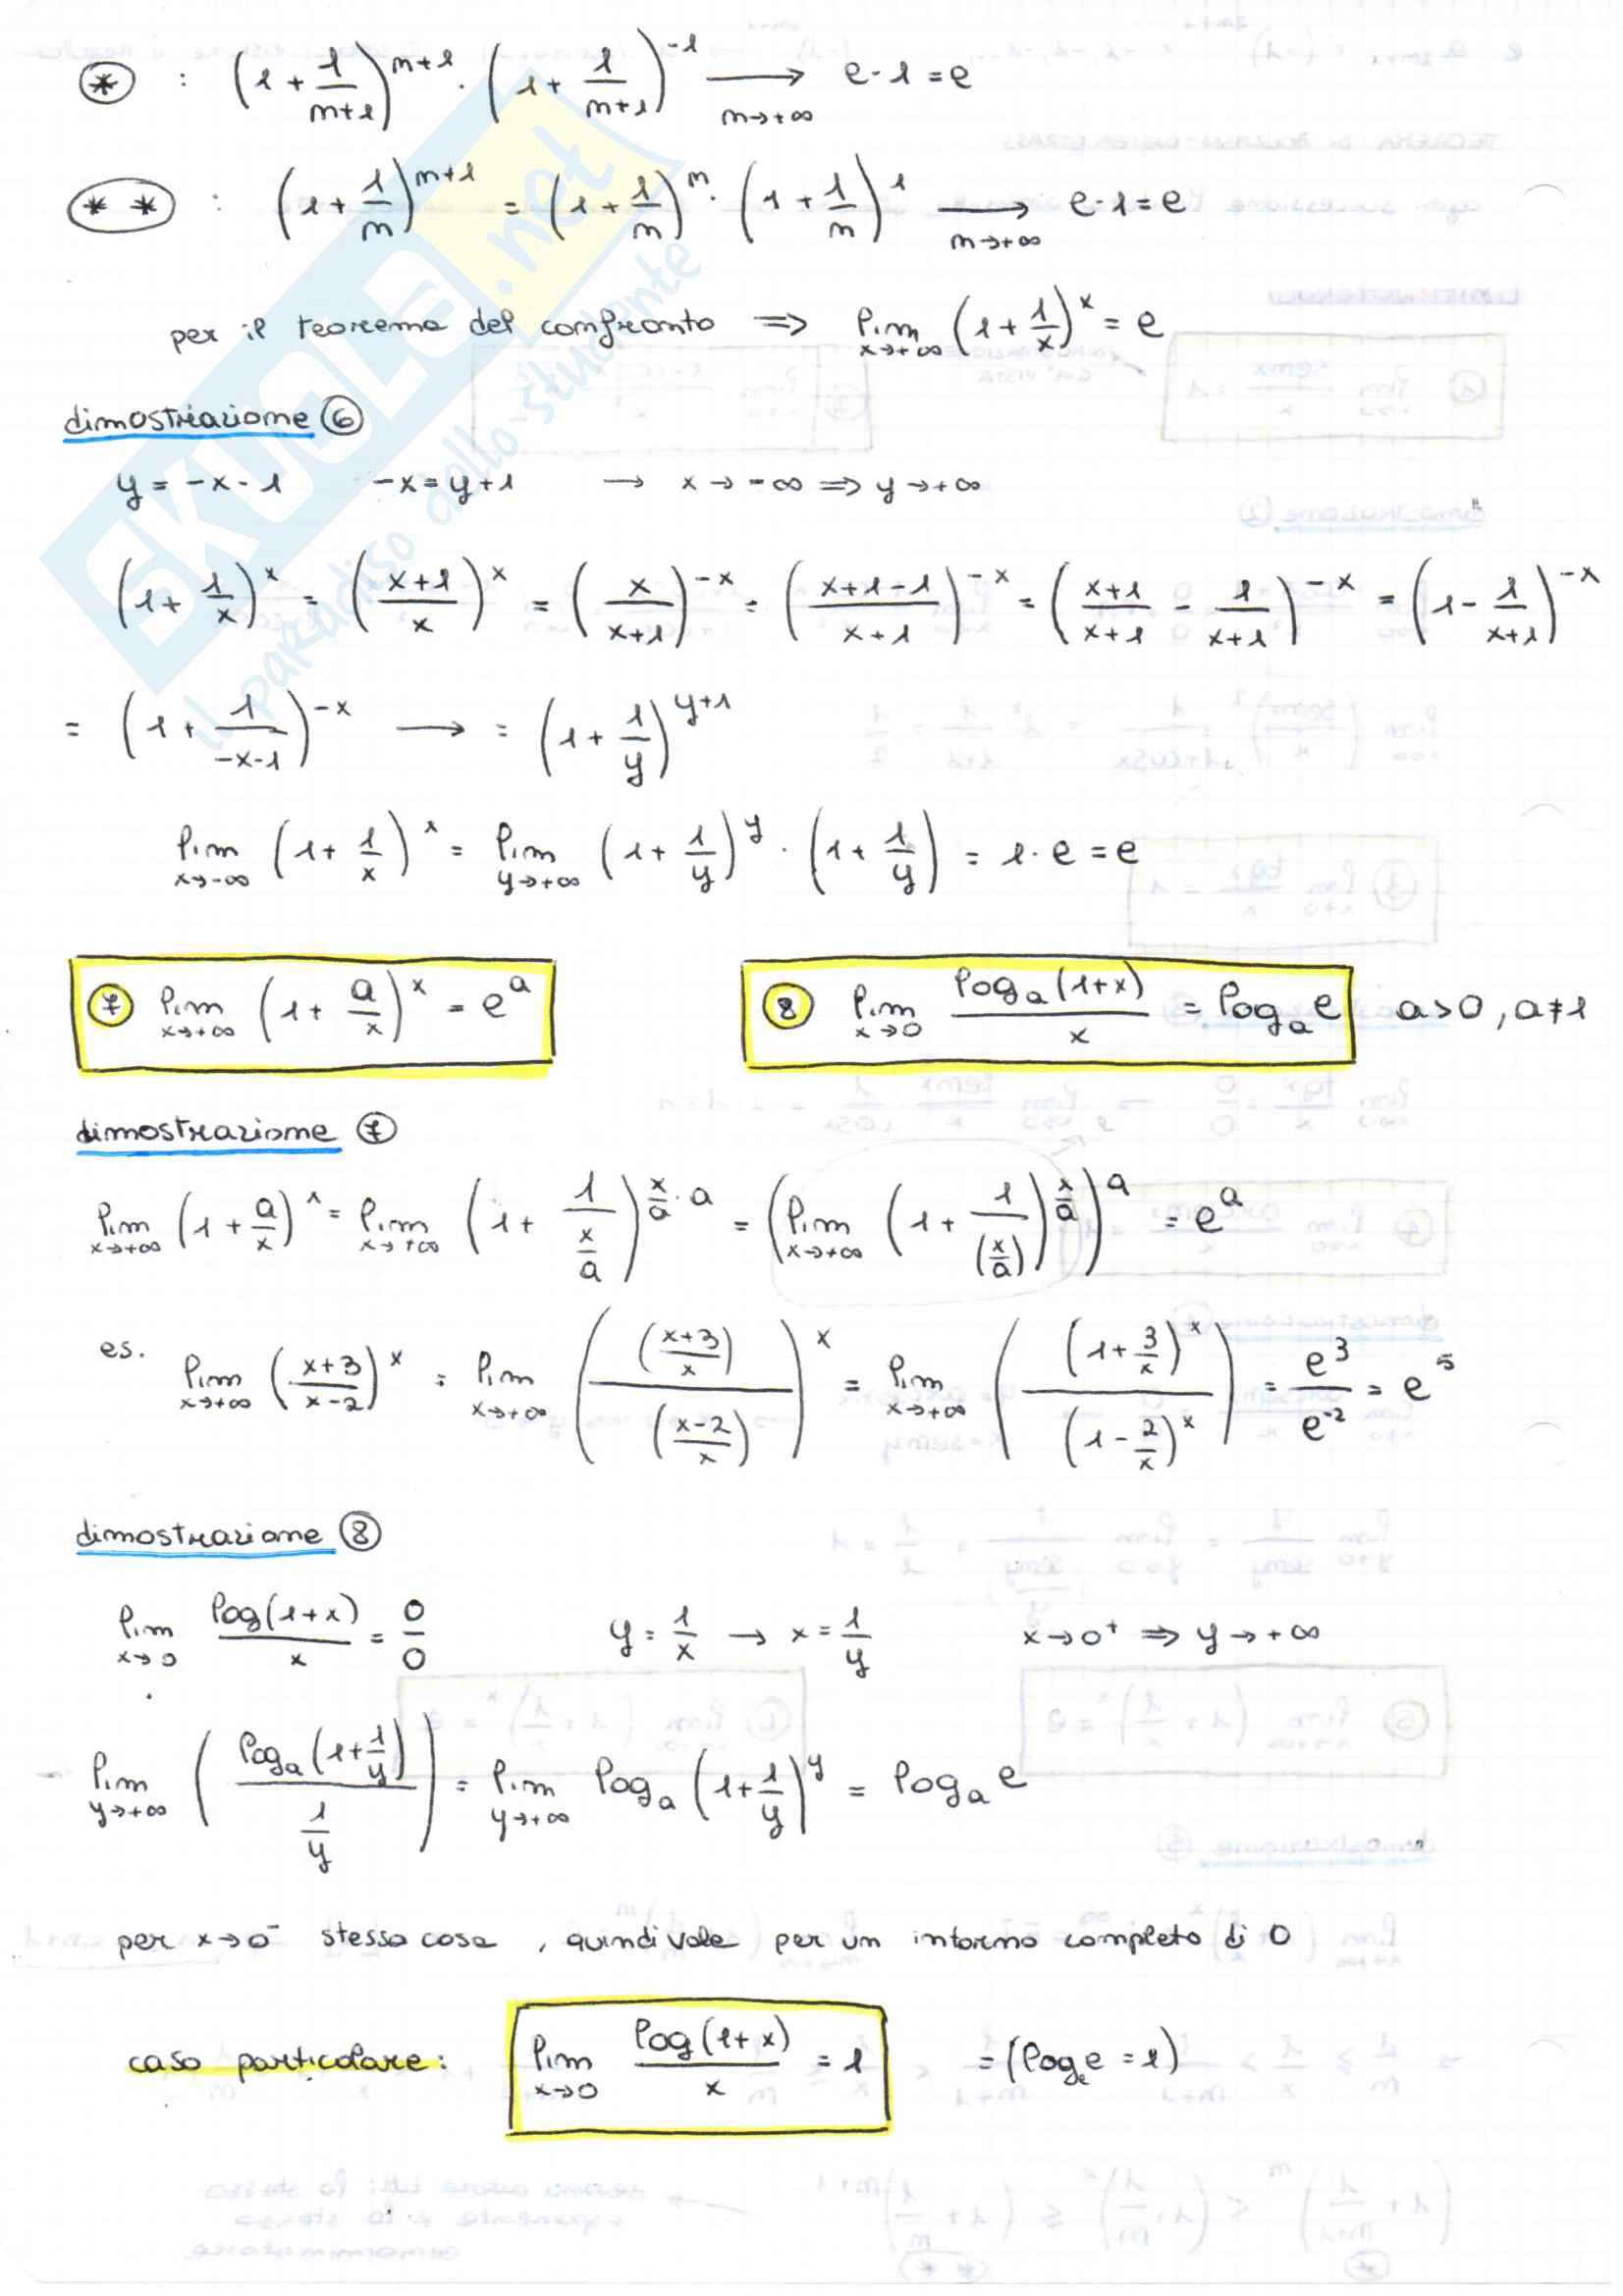 (*) : (1 + 1/(n+1))^(n+1) · (1 + 1/(n+1))^(-1) ⟶_(n→+∞) e·1 = e
(**) : (1 + 1/n)^(n+1) = (1 + 1/n)^n · (1 + 1/n)^1 ⟶_(n→+∞) e·1 = e
per il teorema del confronto ⟹ lim_(x→+∞) (1 + 1/x)^x = e
dimostrazione ⑥
y = -x-1    -x = y+1    → x→-∞ ⟹ y→+∞
(1 + 1/x)^x = ((x+1)/x)^x = (x/(x+1))^(-x) = ((x+1-1)/(x+1))^(-x) = ((x+1)/(x+1) - 1/(x+1))^(-x) = (1 - 1/(x+1))^(-x)
= (1 + 1/(-x-1))^(-x) ⟶ = (1 + 1/y)^(y+1)
lim_(x→-∞) (1 + 1/x)^x = lim_(y→+∞) (1 + 1/y)^y · (1 + 1/y) = 1·e = e
⑦ lim_(x→+∞) (1 + a/x)^x = e^a    ⑧ lim_(x→0) log_a(1+x)/x = log_a e    a>0, a≠1
dimostrazione ⑦
lim_(x→+∞) (1 + a/x)^x = lim_(x→+∞) (1 + 1/(x/a))^(x/a · a) = (lim_(x→+∞) (1 + 1/(x/a))^(x/a))^a = e^a
es. lim_(x→+∞) ((x+3)/(x-2))^x = lim_(x→+∞) (((x+3)/x)/((x-2)/x))^x = lim_(x→+∞) ((1 + 3/x)^x/(1 - 2/x)^x) = e^3/e^-2 = e^5
dimostrazione ⑧
lim_(x→0) log(1+x)/x = 0/0    y = 1/x → x = 1/y    x→0⁺ ⟹ y→+∞
lim_(y→+∞) (log_a(1 + 1/y)/(1/y)) = lim_(y→+∞) log_a (1 + 1/y)^y = log_a e
per x→0⁻ stessa cosa, quindi vale per un intorno completo di 0
caso particolare: lim_(x→0) log(1+x)/x = 1    = (log_e e = 1)
SKUOLA.net
il paradiso dello studente